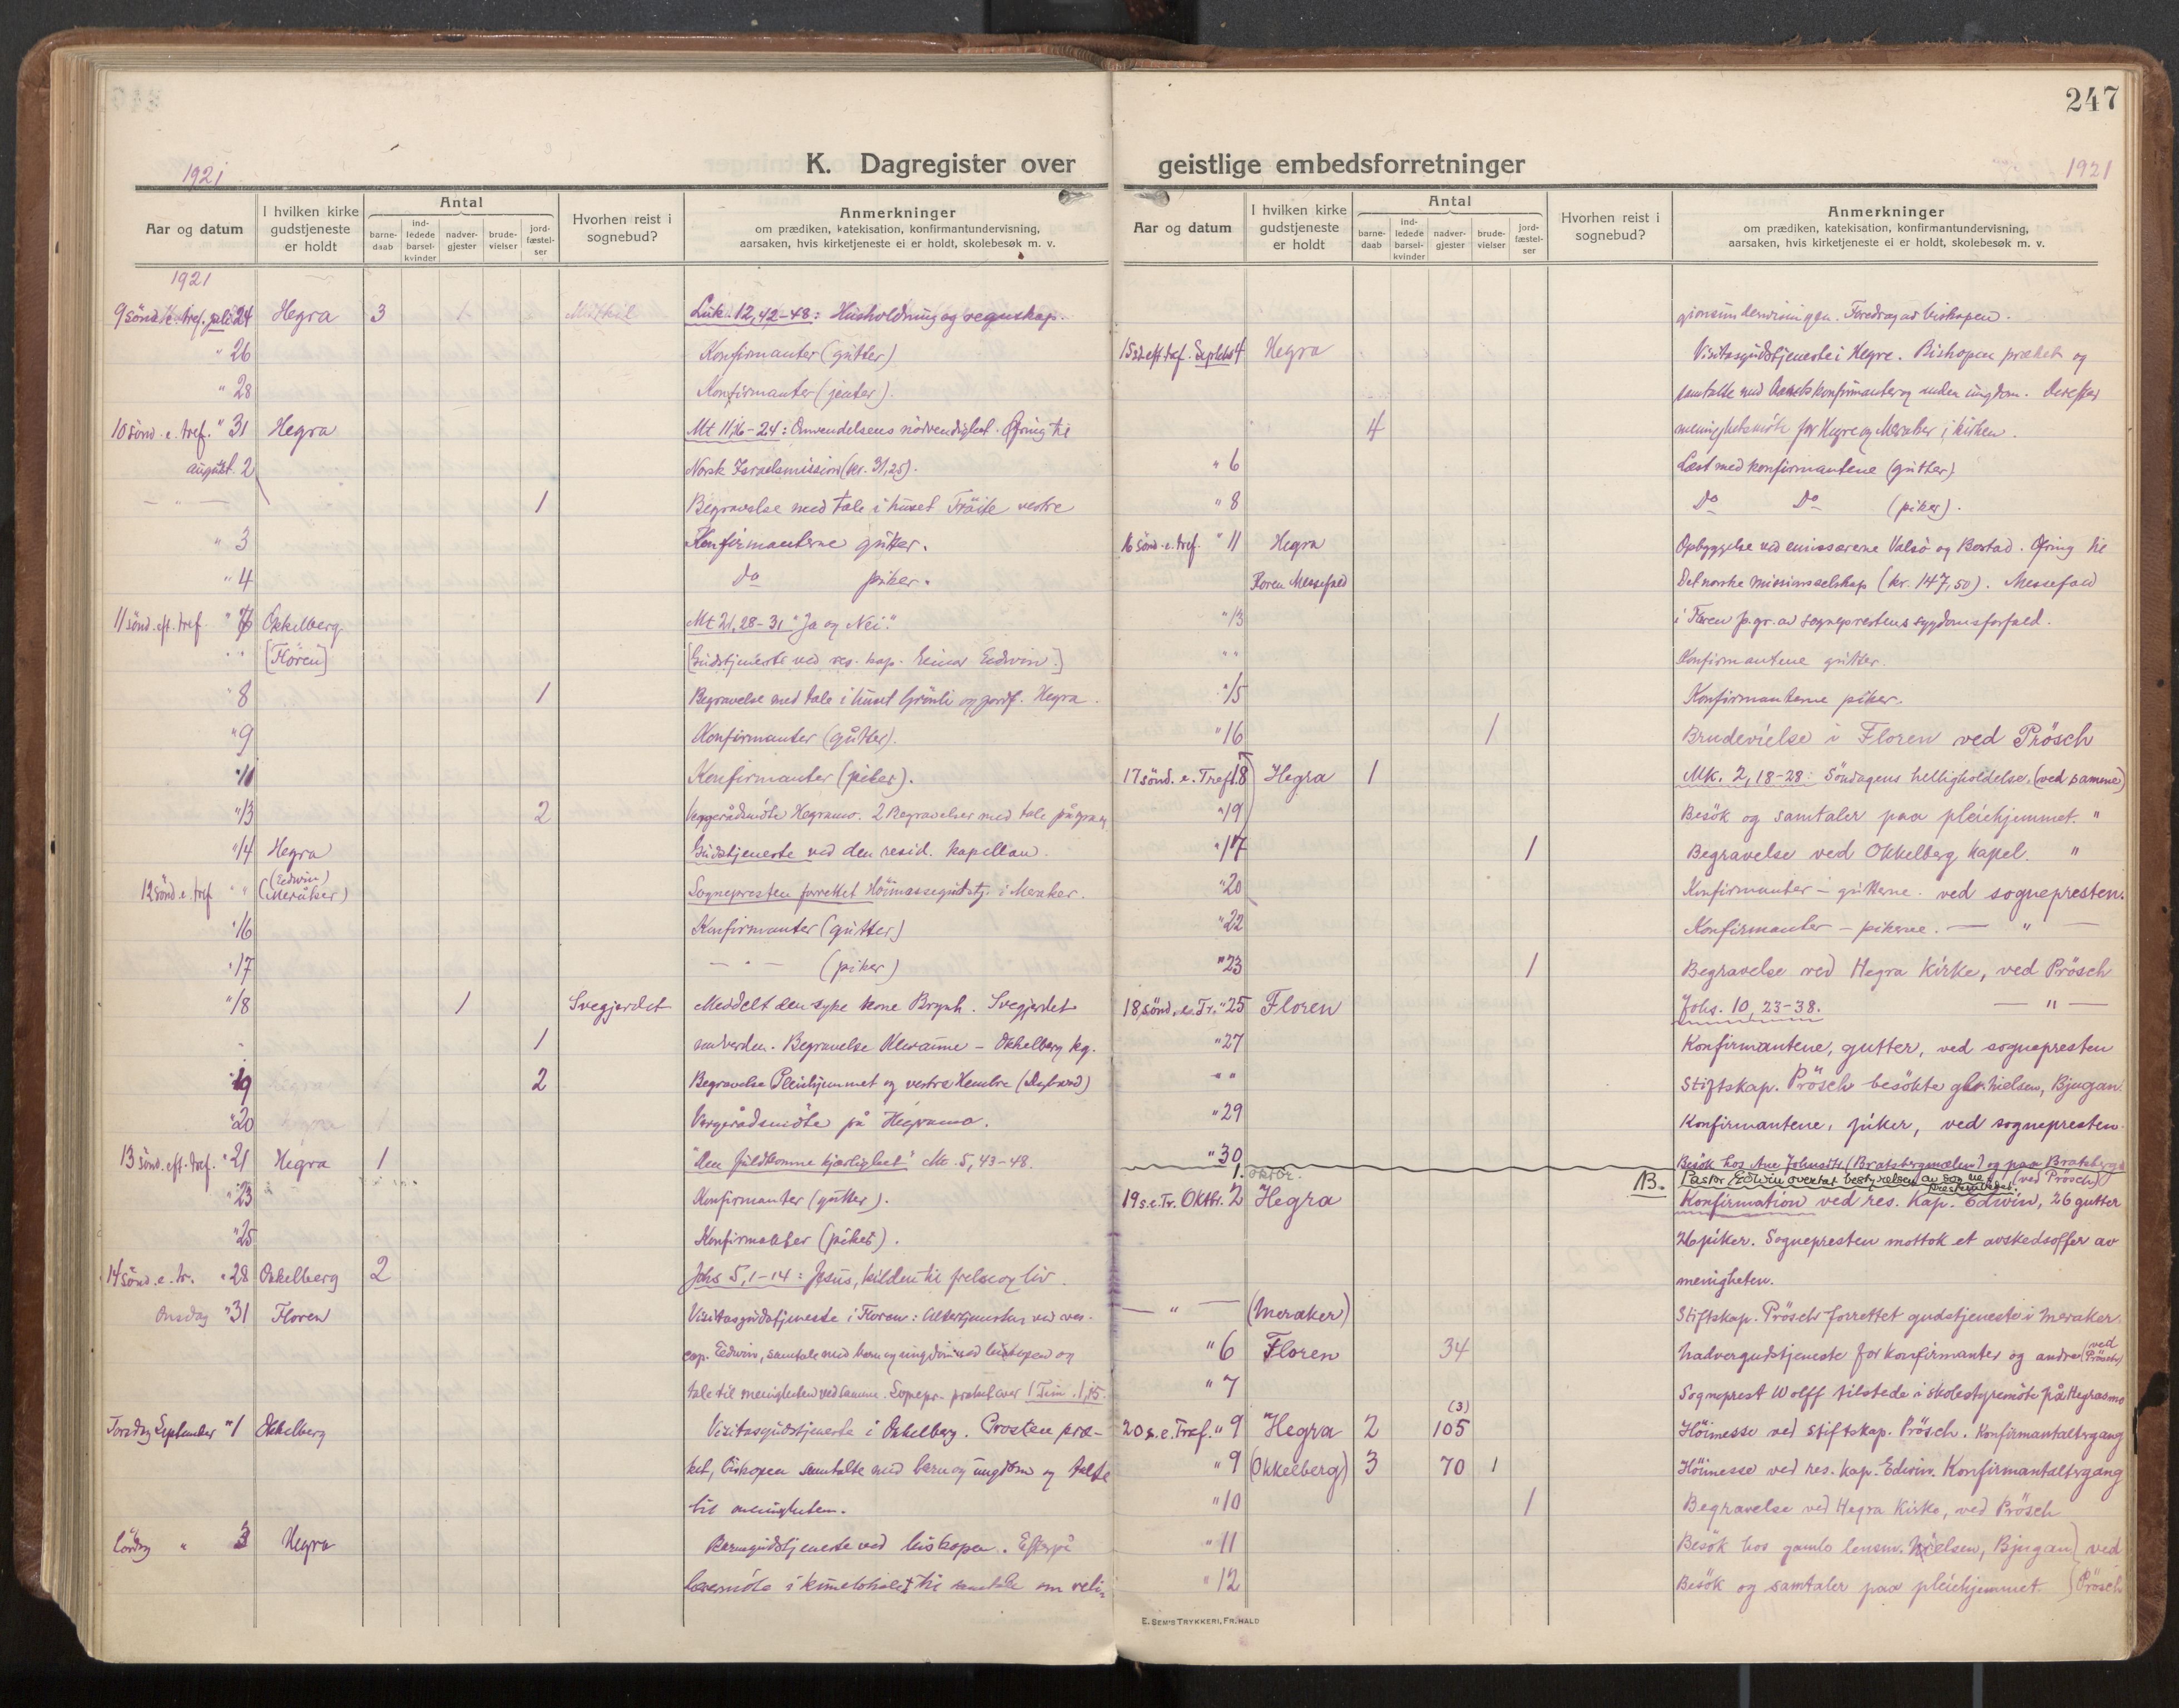 247
1921
K. Dagregister over geistlige embedsforretninger
1921
Aar og datum
I hvilken kirke gudstjeneste er holdt
Antal
barne-daab
ind-ledede barsel-kvinder
nadver-gjester
brude-vielser
jord-fæstel-ser
Hvorhen reist i sognebud?
Anmerkninger
om prædiken, katekisation, konfirmantundervisning,
aarsaken, hvis kirketjeneste ei er holdt, skolebesøk m. v.
1921
9 sönd. e. tref. juli 24 Hegra 3 Luk. 12,42-48: Husholdning og regnskap.
" 26 Konfirmanter (gutter)
" 28 Konfirmanter (jenter).
10 sönd. e. tref. " 31 Hegra Mt 11,16-24: Omvendelsens nödvendighet. Ofring til
august. 2 Norsk Israelsmission (kr. 31,25).
— " — 1 Begravelse med tale i huset Fröite vestre
" 3 Konfirmanterne gutter.
" 4 do piker.
11 sönd. eft. tref. " Okkelberg Mt 21,28-31 "Ja og Nei."
" " [Flören] [Gudstjeneste ved res. kap. Einar Eedwin.]
" 8 1 Begravelse med tale i huset Grönli og jordf. Hegra.
" 9 Konfirmanter (gutter).
" 11 Konfirmanter (piker).
" 13 2 Vergerådsmöte Hegramo. 2 Begravelser med tale på
" 14 Hegra Gudstjeneste ved den resid. kapellan.
12 sönd. e. tref. " " (Eedwin) (Meråker) Sognepresten forrettet Höimessegudstj. i Meraker.
" 16 Konfirmanter (gutter)
" 17 — " — (piker)
" 18 1 Svegjerdet Meddelt den syke kone Brynh. Svegjerdet
1 nadverden. Begravelse – Okkelberg kg.
" 19 2 Begravelse Pleiehjemmet og vestre Hembre
" 20 Vergerådsmöte på Hegramo.
13 sönd. eft. tref. " 21 Hegra 1 "Den fuldkomne kjærlighet" Mt. 5,43-48.
" 23 Konfirmanter (gutter).
" 25 Konfirmanter (piker).
14 sönd. e. tr. " 28 Okkelberg 2 Johs 5,1-14: Jesus, kilden til frelse og liv.
Onsdag " 31 Floren Visitasgudstjeneste i Floren: Altertjenesten ved res.
cap. Eedwin, samtale med barn og ungdom ved biskopen og
tale til menigheten ved samme. Sognepr. præket over 1 Tim. 1,15.
Torsdag September " 1 Okkelberg Visitasgudstjeneste i Okkelberg. Prosten præ-
ket, biskopen samtalte med barn og ungdom og talte
til menigheten.
Lördag " 3 Hegra Barnegudstjeneste ved biskopen. Efterpå
lærermöte i til samtale om reli-
Aar og datum
I hvilken kirke gudstjeneste er holdt
Antal
barne-daab
ind-ledede barsel-kvinder
nadver-gjester
brude-vielser
jord-fæstel-ser
Hvorhen reist i sognebud?
Anmerkninger
om prædiken, katekisation, konfirmantundervisning,
aarsaken, hvis kirketjeneste ei er holdt, skolebesøk m. v.
gionsundervisningen. Foredrag av biskopen.
15 sd. eft. tref. Septbr 4 Hegra Visitasgudstjeneste i Hegre. Biskopen præket og
samtalte med årets konfirmanter og anden ungdom. Derefter
4 menighetsmöte for Hegre og Meraker i kirken.
" 6 Læst med konfirmantene (gutter)
" 8 Do Do (piker).
16 sönd. e. tref. " 11 Hegra Opbyggelse ved emissærene Valsö og Bostad. Ofring til
Floren Messefald Det norske missionsselskap (kr. 147,50). Messefald
" 13 i Floren p.gr. av sogneprestens sygdomsforfald.
" " Konfirmantene gutter.
" 15 Konfirmanterne piker.
" 16 1 Brudevielse i Floren ved Prösch
17 sönd. e. Tref. 18 Hegra 1 Mk. 2, 18-28: Söndagens helligholdelse. (ved samme)
" 19 Besök og samtaler paa pleiehjemmet. "
" 17 1 Begravelse ved Okkelberg kapel. "
" 20 Konfirmanter – gutterne. ved sognepresten.
" 22 Konfirmanter – pikerne. — " —
" 23 1 Begravelse ved Hegra kirke, ved Prösch
18 sönd. e. Tr. " 25 Floren Johs. 10, 23-38. — " —
" 27 Konfirmantene, gutter, ved sognepresten
" " Stiftskap. Prösch besökte glr. Nielsen, Bjugan.
" 29 Konfirmantene, piker, ved sognepresten
" 30 Besök hos Ane Johnsdtr. (Bratsbergmælen) og paa Bratsberg (ved Prösch)
1. oktbr. B. Pastor Edwin overtat bestyrelsen av sogneprestembedet.
19 s. e. Tr. Oktbr. 2 Hegra Konfirmation ved res. kap. Edwin, 26 gutter
26 piker. Sognepresten mottok et avskedsoffer av
menigheten.
— " — (Meraker) Stiftskap. Prösch forrettet gudstjeneste i Meraker.
" 6 Floren 34 Nadvergudstjeneste for konfirmanter og andre (ved Prösch)
" 7 Sogneprest Wolff tilstede i skolestyremöte på Hegramo
20 s. e. Tref. " 9 Hegra 2 (3) 105 Höimesse ved stiftskap. Prösch. Konfirmantaltergang
" 9 (Okkelberg) 3 70 1 Höimesse ved res. kap. Edwin. Konfirmantaltergang
" 10 1 Begravelse ved Hegra kirke, ved Prösch
" 11 Besök hos gamle lensm. Nielsen, Bjugan } ved
" 12 Besök og samtaler paa pleiehjemmet } Prösch
E. SEM'S TRYKKERI, FR.HALD